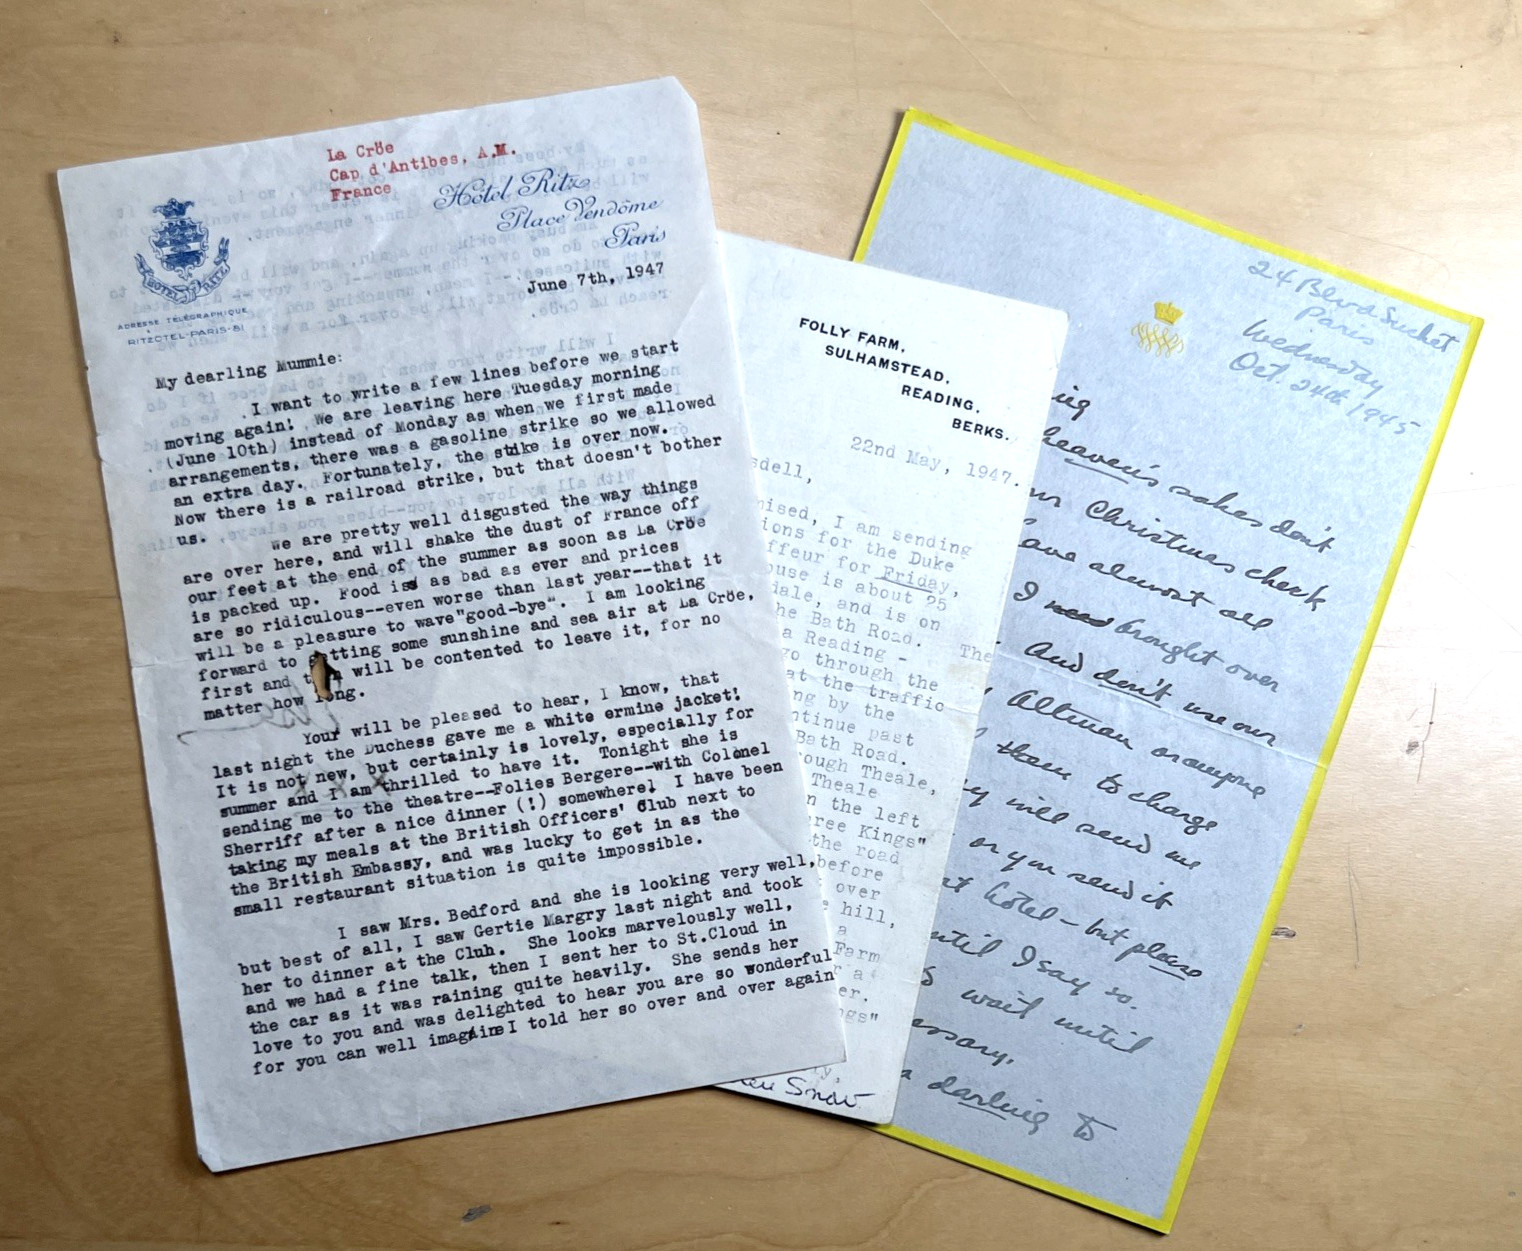 La Cröe
Cap d'Antibes, A.M.
France
Hôtel Ritz
Place Vendôme
Paris
HOTEL RITZ
ADRESSE TÉLÉGRAPHIQUE
RITZOTEL-PARIS-81
June 7th, 1947
My dearling Mummie:
I want to write a few lines before we start
moving again! We are leaving here Tuesday morning
(June 10th) instead of Monday as when we first made
arrangements, there was a gasoline strike so we allowed
an extra day. Fortunately, the stike is over now.
Now there is a railroad strike, but that doesn't bother
us.
We are pretty well disgusted the way things
are over here, and will shake the dust of France off
our feet at the end of the summer as soon as La Cröe
is packed up. Food is as bad as ever and prices
are so ridiculous--even worse than last year--that it
will be a pleasure to wave "good-bye". I am looking
forward to getting some sunshine and sea air at La Cröe,
first and will be contented to leave it, for no
matter how long.
Your will be pleased to hear, I know, that
last night the Duchess gave me a white ermine jacket!
It is not new, but certainly is lovely, especially for
summer and I am thrilled to have it. Tonight she is
sending me to the theatre--Folies Bergere--with Colonel
Sherriff after a nice dinner (!) somewhere! I have been
taking my meals at the British Officers' Club next to
the British Embassy, and was lucky to get in as the
small restaurant situation is quite impossible.
I saw Mrs. Bedford and she is looking very well,
but best of all, I saw Gertie Margry last night and took
her to dinner at the Cluh. She looks marvelously well,
and we had a fine talk, then I sent her to St.Cloud in
the car as it was raining quite heavily. She sends her
love to you and was delighted to hear you are so wonderful
for you can well imagaine I told her so over and over again
FOLLY FARM,
SULHAMSTEAD,
READING,
BERKS.
22nd May, 1947.
sdell,
mised, I am sending
ions for the Duke
ffeur for Friday,
ouse is about 25
dale, and is on
he Bath Road. The
a Reading -
go through the
at the traffic
ng by the
ntinue past
Bath Road.
rough Theale,
Theale
n the left
ree Kings"
the road
before
over
e hill,
a
Farm
a
er.
ngs"
ly,
Snow
24 Blvd. Suchet
Paris
Wednesday
Oct. 24th, 1945
ing
heaven's sakes don't
ur Christmas check
ave almost all
I brought over
And don't use our
Altman or anyone
them to change
ey will send me
or you send it
at hotel - but please
until I say so.
wait until
essary.
a darling to